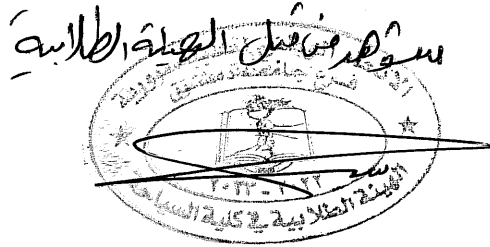 سوهد من قبل الهيئة الطلابية
فرع جامعة دمشق
٢٠٢٢ - ٢٠٢٣
الهيئة الطلابية في كلية السياحة